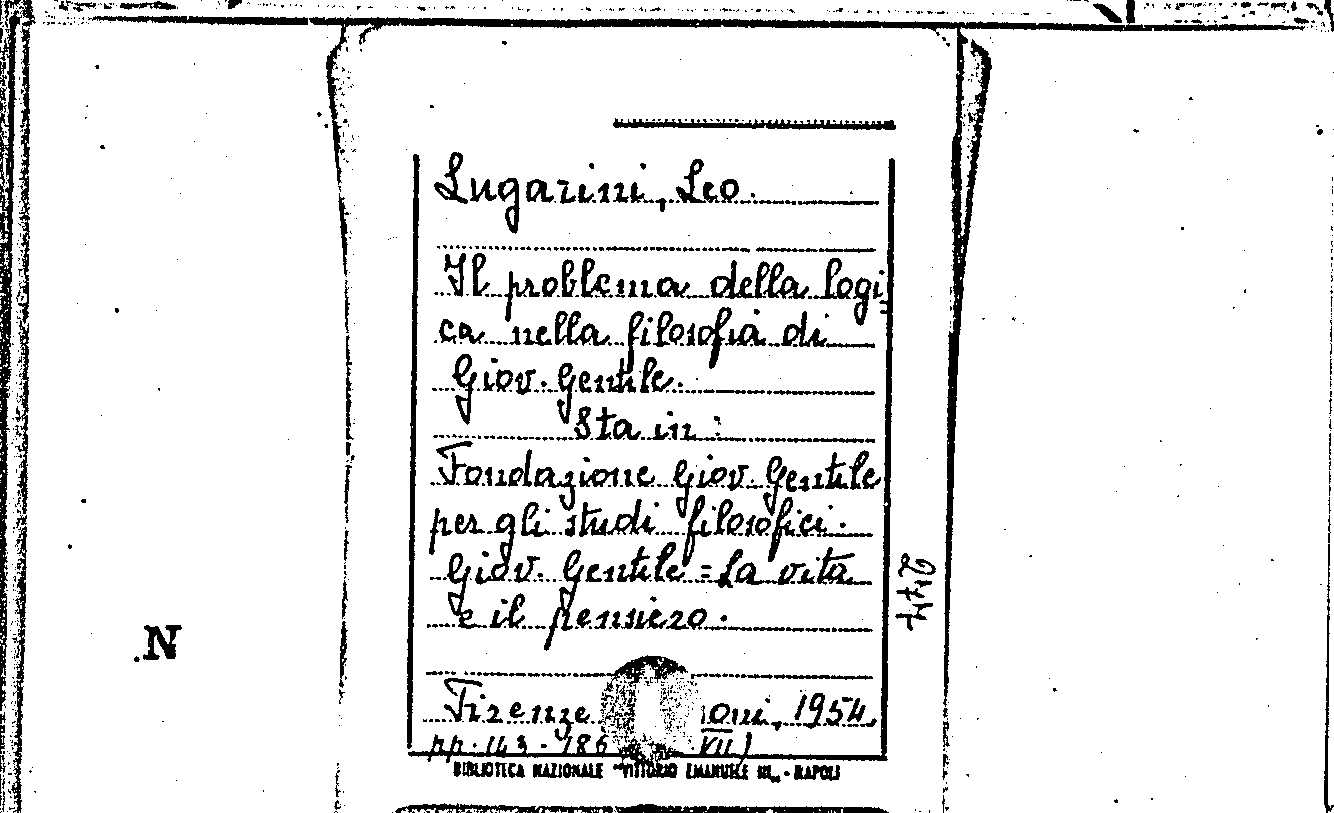 Lugarini, Leo.
Il problema della logi=
ca nella filosofia di
Giov. Gentile.
Sta in:
Fondazione Giov. Gentile
per gli studi filosofici.
Giov. Gentile = La vita
e il pensiero.
Firenze oni, 1954.
pp. 143-186 VII)
BIBLIOTECA NAZIONALE "VITTORIO EMANUELE III" - NAPOLI
N